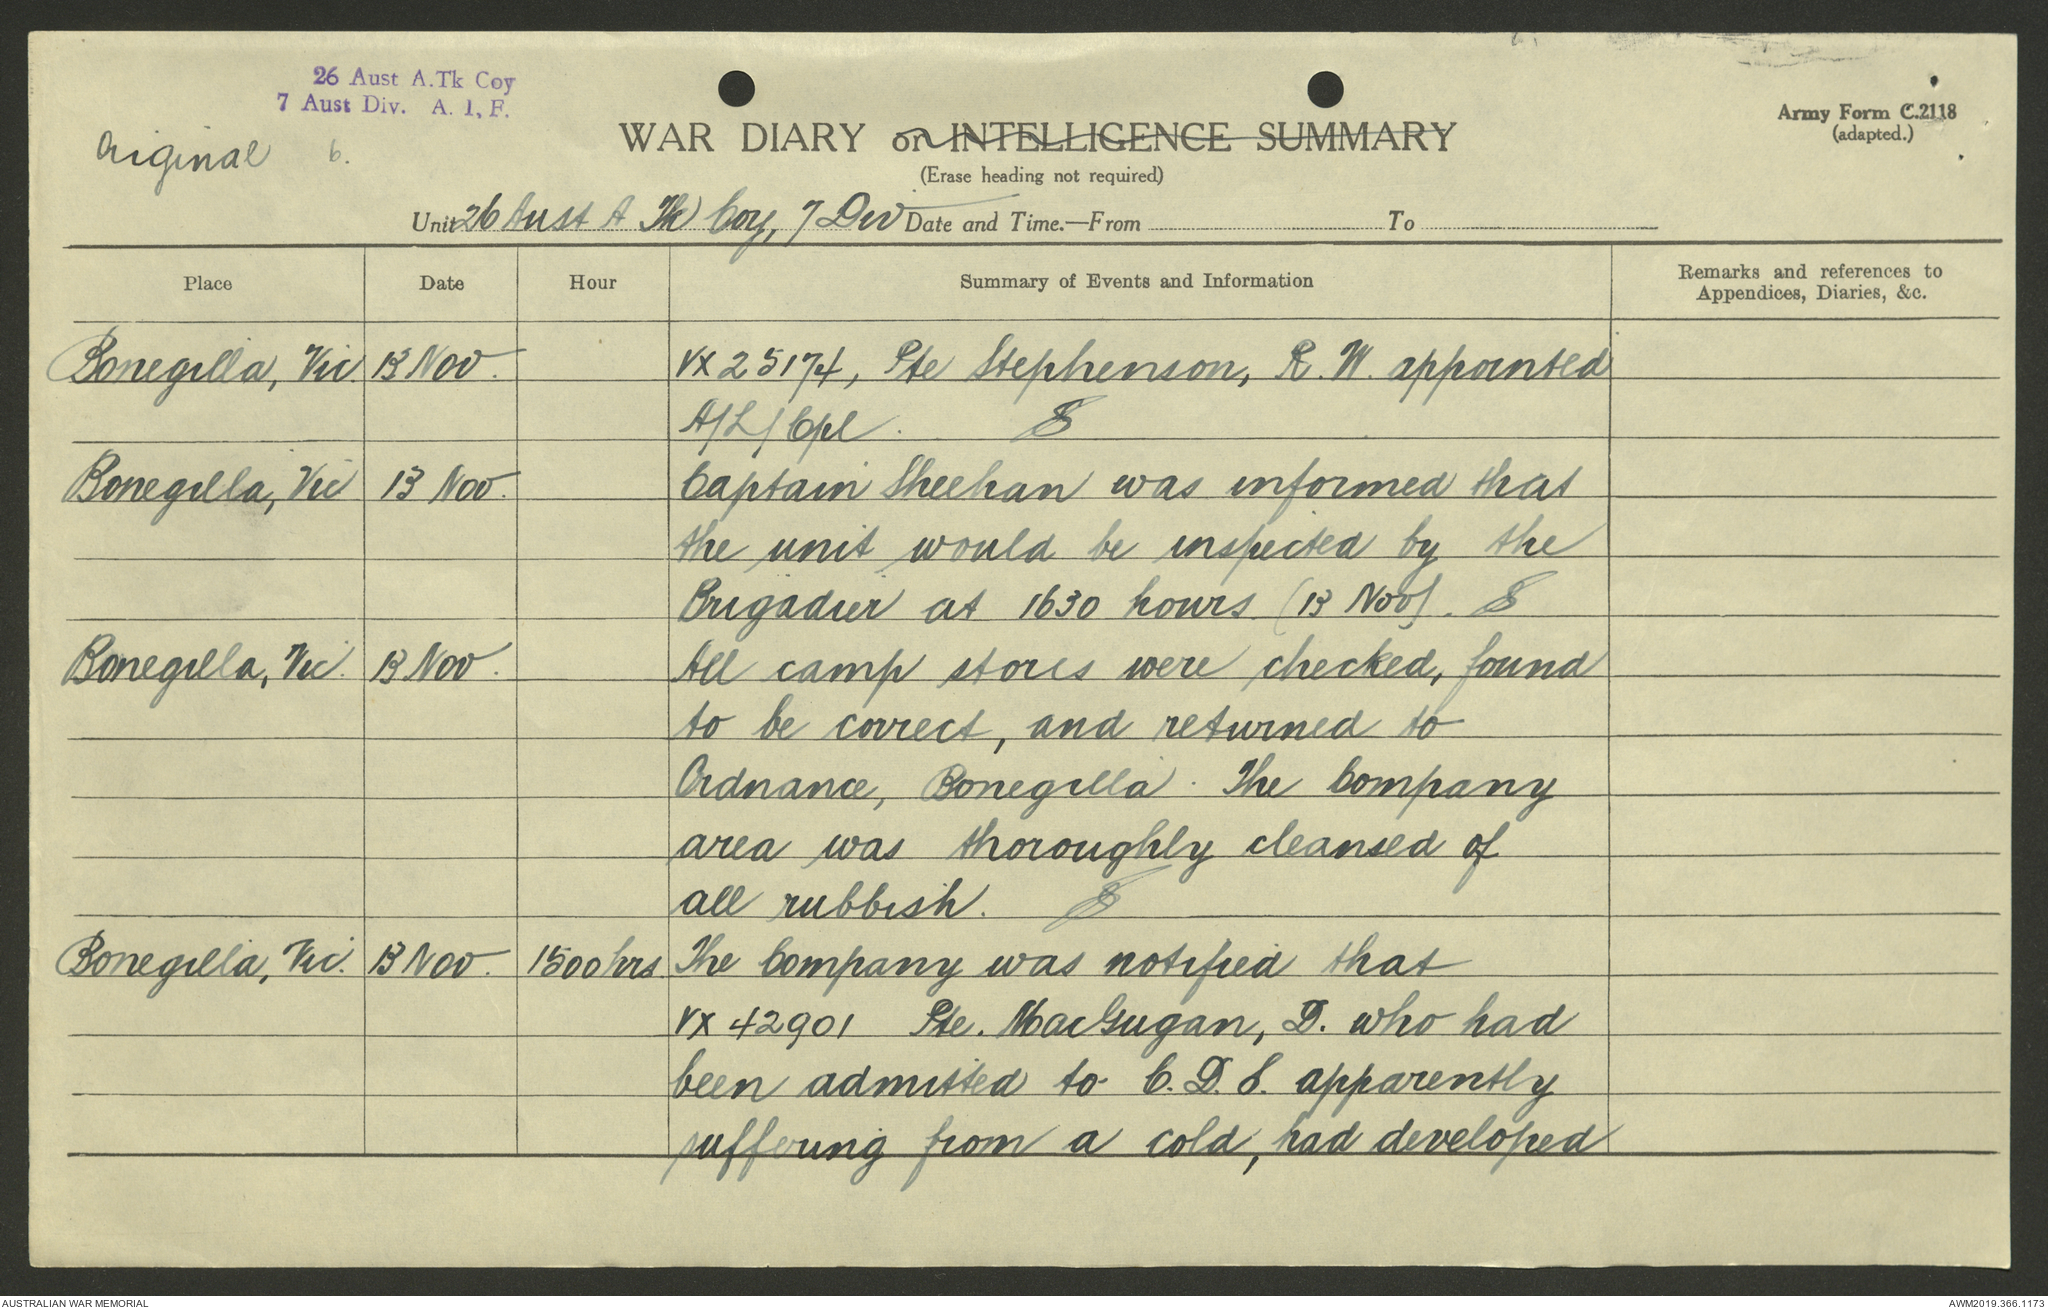 26 Aust A.Tk Coy
7 Aust Div. A. I. F.
Original 6.
Army Form C.2118
(adapted.)
WAR DIARY or INTELLIGENCE SUMMARY
(Erase heading not required)
Unit 26 Aust A Tk Coy, 7 Div Date and Time.—From To
Place Date Hour Summary of Events and Information Remarks and references to
Appendices, Diaries, &c.
Bonegilla, Vic. 13 Nov. VX 25174, Pte Stephenson, R. W. appointed
A/L/Cpl.
Bonegilla, Vic 13 Nov. Captain Sheehan was informed that
the unit would be inspected by the
Brigadier at 1630 hours (13 Nov).
Bonegilla, Vic. 13 Nov. All camp stores were checked, found
to be correct, and returned to
Ordnance, Bonegilla. The Company
area was thoroughly cleansed of
all rubbish.
Bonegilla, Vic. 13 Nov. 1500 hrs. The Company was notified that
VX 42901 Pte. MacGugan, D. who had
been admitted to C. D. S. apparently
suffering from a cold, had developed
AUSTRALIAN WAR MEMORIAL AWM2019.366.1173